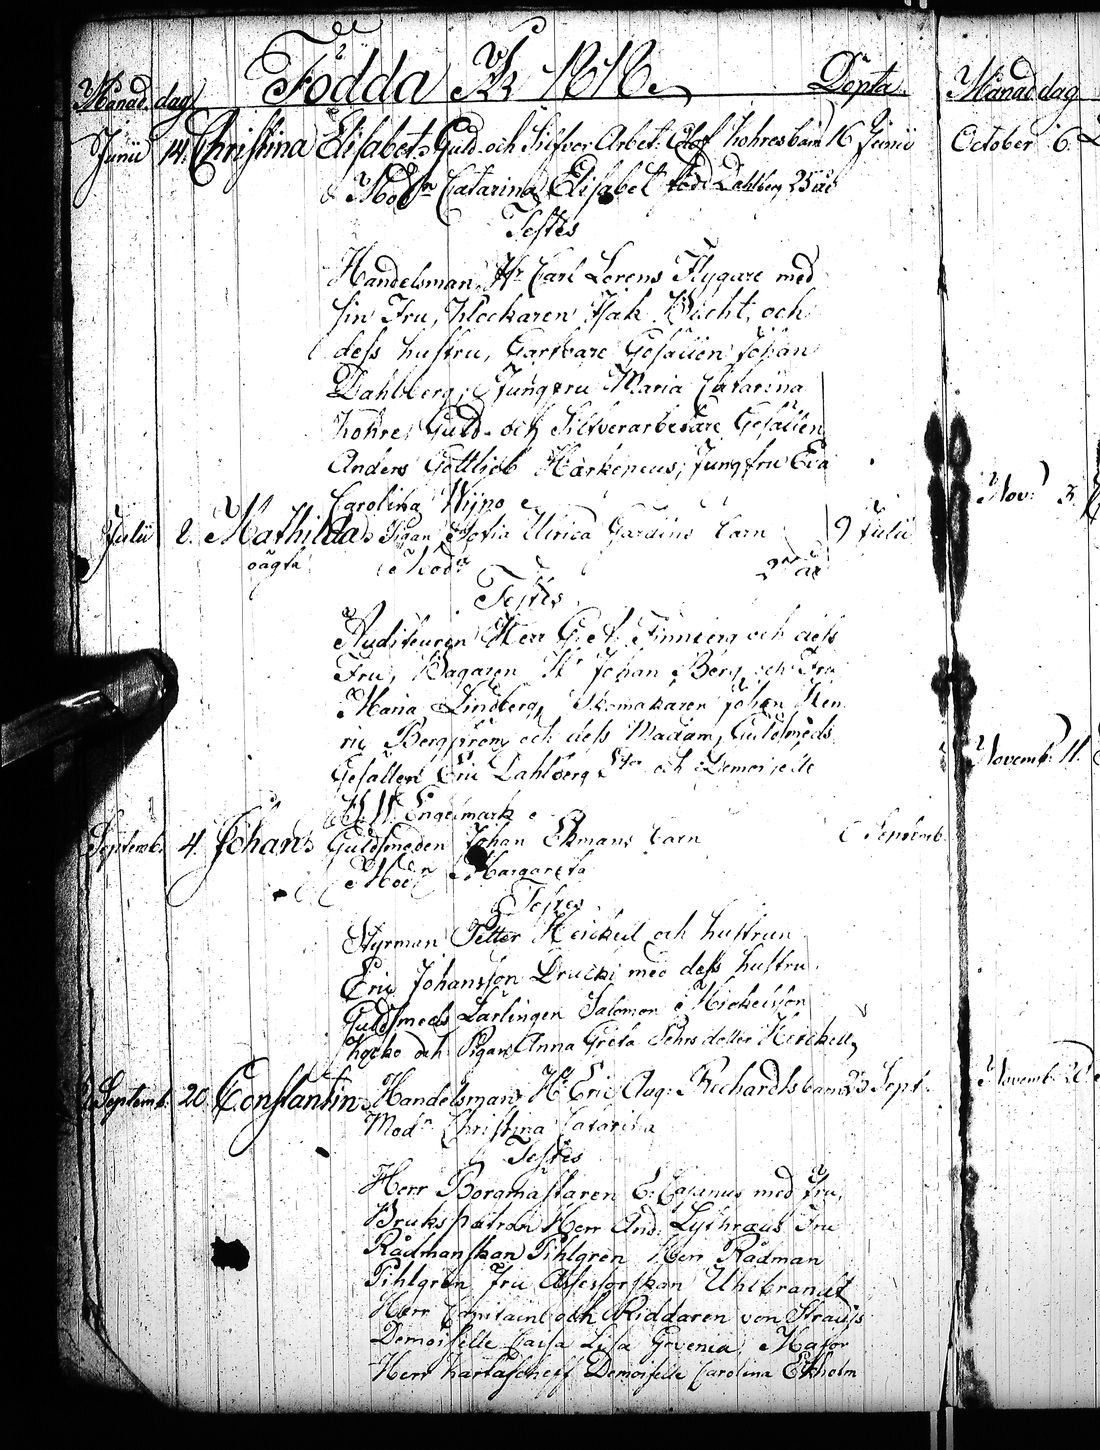 Månad. dag. Födda År 1818. Döpta
Junii 14. Christina Elisabet. Guld- och Silfver Arbet: Olof Kohres barn 16 Junii
Modr Catarina Elisabet född Dahlberg 25 år
Testes
Handelsman Hr Carl Lorens Flygare med
sin Fru, Klockaren Isak Wicht, och
dess hustru, Garfvare Gesällen Johan
Dahlberg, Jungfru Maria Catarina
Kohre, Guld- och Silfverarbetare Gesällen
Anders Gottlieb Härkeneus, Jungfru Eva
Carolina Wijno
Julii 2. Mathilda. Pigan Sofia Ulrica Gardins barn 9 Julii
oägta Modr år
Testes
Auditeuren Herr G. A. Finnberg och dess
Fru, Bagaren Hr Johan Berg och Fru
Maria Lindberg, Skomakaren Johan Hen
ric Bergström och dess Madam, Guldsmeds
Gesällen Eric Dahlberg och Demoiselle
Engelmark
Septemb. 4. Johan. Guldsmeden Johan Ekmans barn Septemb.
Modr Margareta
Testes
Styrman Petter Heickell och hustrun
Eric Johansson Drucki med dess hustru
Guldsmeds Lärlingen Salomon Mickelsson
och Pigan Anna Greta Pehrsdotter Heickell
Septemb. 20. Constantin. Handelsman Hr Eric Aug: Richardts barn 23 Sept.
Modr Christina Catarina
Testes
Herr Borgmästaren E: Cajanus med Fru,
Bruks patron Herr And. Lythraus Fru
Rådmanskan Pihlgren Herr Rådman
Pihlgren Fru Assessorskan Uhlbrandt
Herr Capitaine och Riddaren von Strauss
Demoiselle Caisa Lisa Major
Herr Kartascheff Demoiselle Carolina Ekholm
Månad dag
October 6.
Nov: 3.
Novemb. 11.
Novemb. 20.